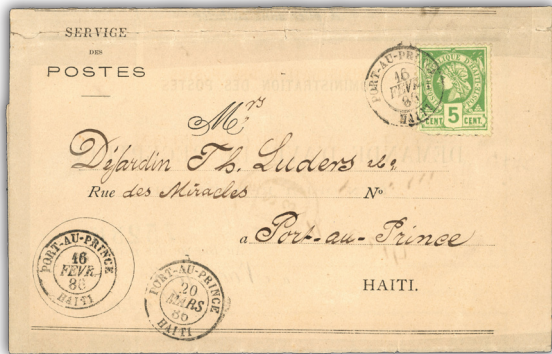 SERVICE
DES
POSTES
PORT-AU-PRINCE
16
FEVR.
86
HAITI
REPUBLIQUE D'HAITI
CENT. 5 CENT.
Mrs
Déjardin Th. Luders & Co
Rue des Miracles No
a Port-au-Prince
HAITI.
PORT-AU-PRINCE
16
FEVR.
86
HAITI
PORT-AU-PRINCE
20
MARS
86
HAITI